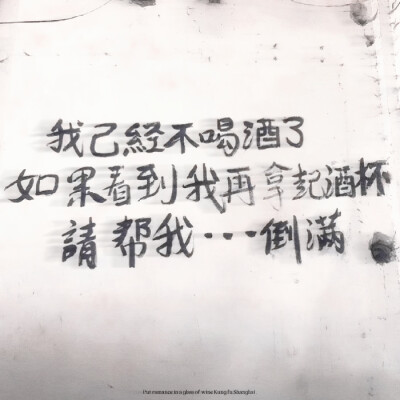 我己経不喝酒了
如果看到我再拿起酒杯
請帮我···倒滿
The romance in a glass of wine Kung fu Shanghai